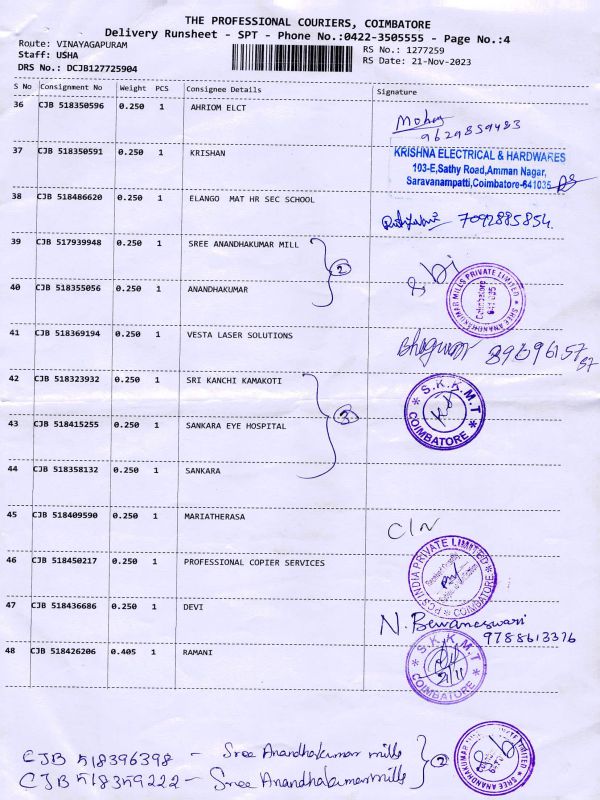 THE PROFESSIONAL COURIERS, COIMBATORE
Delivery Runsheet - SPT - Phone No.:0422-3505555 - Page No.:4
Route: VINAYAGAPURAM
RS No.: 1277259
Staff: USHA
RS Date: 21-Nov-2023
DRS No.: DCJB127725904
S No Consignment No Weight PCS Consignee Details Signature
36 CJB 518350596 0.250 1 AHRIOM ELCT
9629859483
37 CJB 518350591 0.250 1 KRISHAN
KRISHNA ELECTRICAL & HARDWARES
103-E,Sathy Road,Amman Nagar,
Saravanampatti,Coimbatore-641035
38 CJB 518486620 0.250 1 ELANGO MAT HR SEC SCHOOL
7092885854.
39 CJB 517939948 0.250 1 SREE ANANDHAKUMAR MILL
2
SREE ANANDHAKUMAR MILLS PRIVATE LIMITED
Coimbatore
641 035
40 CJB 518355056 0.250 1 ANANDHAKUMAR
41 CJB 518369194 0.250 1 VESTA LASER SOLUTIONS
42 CJB 518323932 0.250 1 SRI KANCHI KAMAKOTI
3
S.K.K.M.T
COIMBATORE
43 CJB 518415255 0.250 1 SANKARA EYE HOSPITAL
44 CJB 518358132 0.250 1 SANKARA
45 CJB 518409590 0.250 1 MARIATHERASA
C/N
46 CJB 518450217 0.250 1 PROFESSIONAL COPIER SERVICES
PCS INDIA PRIVATE LIMITED
COIMBATORE
47 CJB 518436686 0.250 1 DEVI
N. Bewaneswari
9788613376
48 CJB 518426206 0.405 1 RAMANI
S.K.K.M.T
21/11
COIMBATORE
CJB 518396398 - Sree Anandhakumar mills
CJB 518359222 - Sree Anandhakumar mills
2